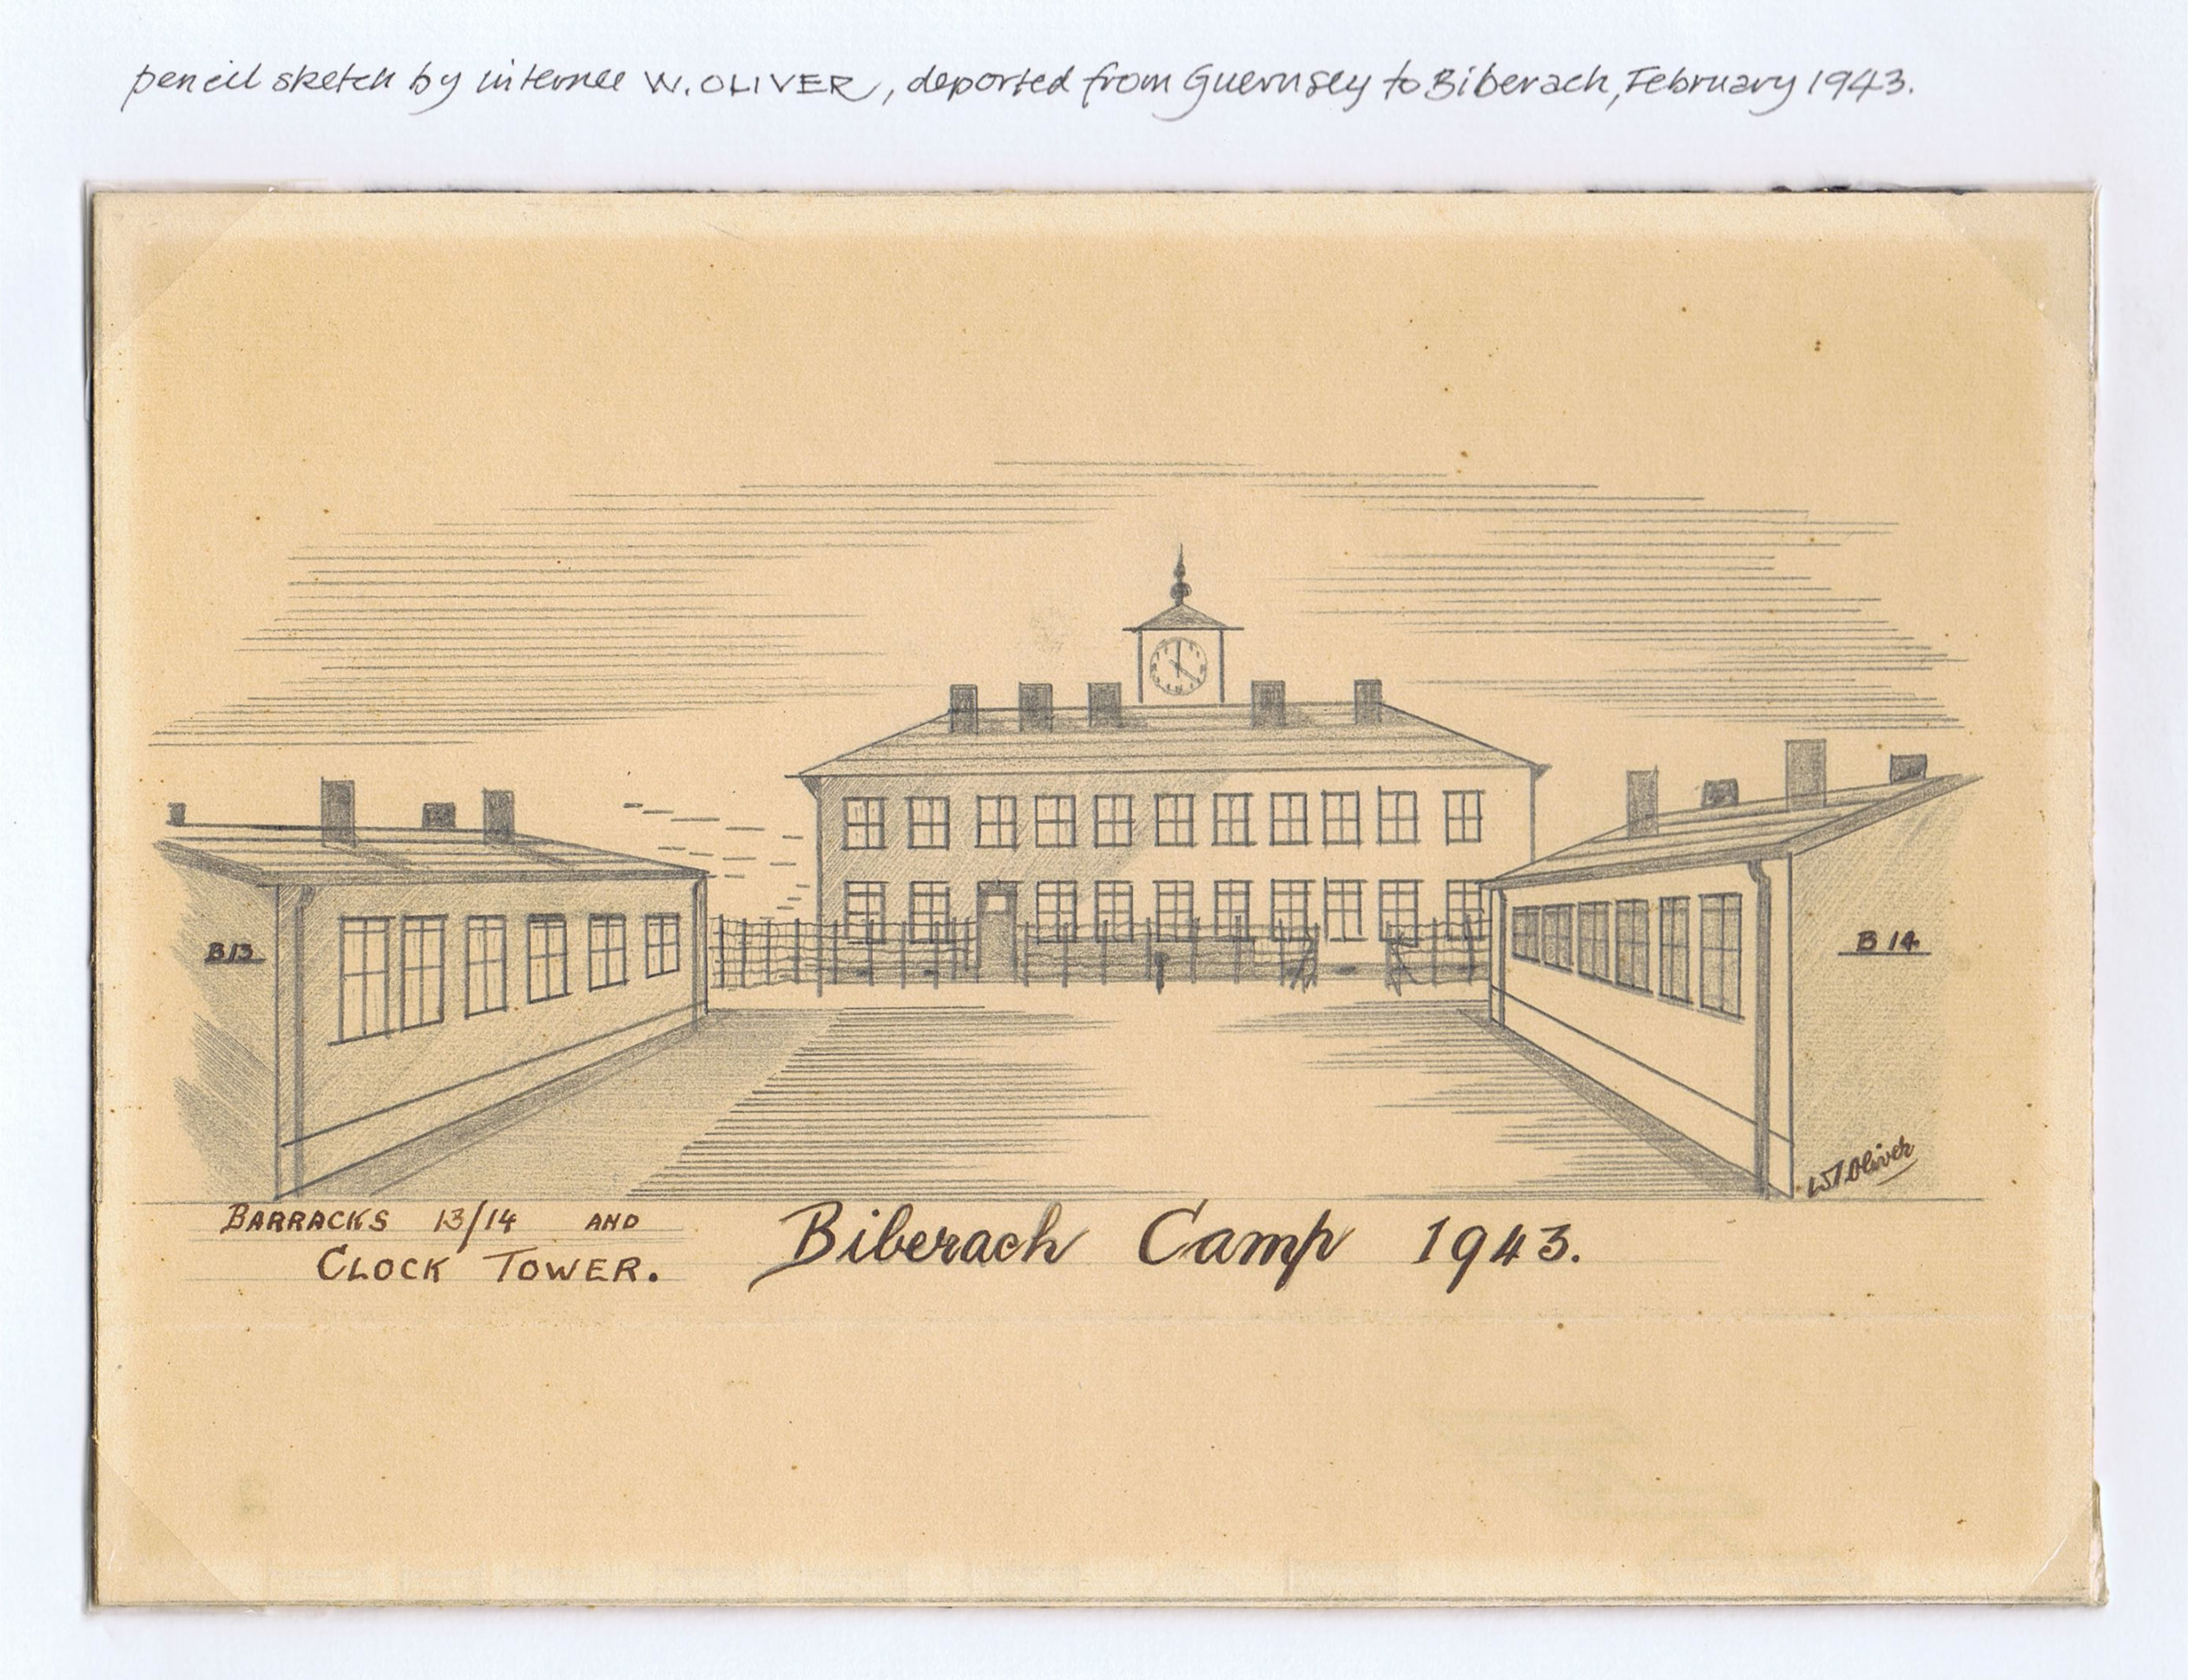 pencil sketch by internee W. OLIVER, deported from Guernsey to Biberach, February 1943.
B13
B 14
W Oliver
BARRACKS 13/14 AND
CLOCK TOWER.
Biberach Camp 1943.